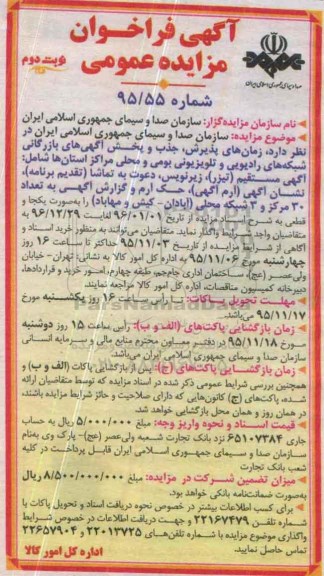 آگهی فراخوان
مزایده عمومی
نوبت دوم
صدا و سیمای جمهوری اسلامی ایران
شماره ۹۵/۵۵
نام سازمان مزایده‌گزار: سازمان صدا و سیمای جمهوری اسلامی ایران
موضوع مزایده: سازمان صدا و سیمای جمهوری اسلامی ایران در
نظر دارد، زمان‌های پذیرش، جذب و پخش آگهی‌های بازرگانی
شبکه‌های رادیویی و تلویزیونی بومی و محلی مراکز استان‌ها شامل:
آگهی مستقیم (تیزر)، زیرنویس، دعوت به تماشا (تقدیم برنامه)،
نشان آگهی (آرم آگهی)، حک آرم و گزارش آگهی به تعداد
۳۰ مرکز و ۳ شبکه محلی (آبادان - کیش و مهاباد) را به‌صورت یکجا و
قطعی به شرح اسناد مزایده از تاریخ ۹۶/۰۱/۰۱ لغایت ۹۶/۱۲/۲۹ به
متقاضیان واجد شرایط واگذار نماید. متقاضیان می‌توانند به منظور خرید اسناد و
آگاهی از شرایط مزایده از تاریخ ۹۵/۱۱/۰۳ حداکثر تا ساعت ۱۶ روز
چهارشنبه مورخ ۹۵/۱۱/۰۶ به اداره کل امور کالا به نشانی: تهران - خیابان
ولی‌عصر (عج)، ساختمان اداری جام‌جم، طبقه چهارم، امور خرید و قراردادها،
دبیرخانه کمیسیون مناقصات، اداره کل امور کالا مراجعه نمایند.
مهلت تحویل پاکات: تا رأس ساعت ۱۶ روز یکشنبه مورخ
۹۵/۱۱/۱۷ می‌باشد.
زمان بازگشایی پاکت‌های (الف و ب): رأس ساعت ۱۵ روز دوشنبه
مورخ ۹۵/۱۱/۱۸ در دفتر معاون محترم منابع مالی و سرمایه انسانی
سازمان صدا و سیمای جمهوری اسلامی ایران می‌باشد.
زمان بازگشایی پاکت‌های (ج): پس از بازگشایی پاکات (الف و ب) و
همچنین بررسی شرایط عمومی ذکر شده در اسناد مزایده که توسط متقاضیان ارائه
شده، پاکت‌های (ج) کانون‌هایی که دارای صلاحیت و حائز شرایط مزایده باشند،
در همان روز و همان محل بازگشایی خواهد شد.
قیمت اسناد و نحوه واریز وجه: مبلغ ۵/۰۰۰/۰۰۰ ریال به حساب
جاری ۶۵۱۰۷۳۸۴ نزد بانک تجارت شعبه ولی‌عصر (عج)- پارک وی به‌نام
سازمان صدا و سیمای جمهوری اسلامی ایران قابل پرداخت در کلیه
شعب بانک تجارت
میزان تضمین شرکت در مزایده: مبلغ ۸/۵۰۰/۰۰۰/۰۰۰ ریال
به‌صورت ضمانت‌نامه بانکی خواهد بود.
برای کسب اطلاعات بیشتر در خصوص نحوه دریافت اسناد و تحویل پاکات با
شماره تلفن ۲۲۱۶۷۴۷۹ و جهت دریافت اطلاعات در خصوص شرایط
واگذاری موضوع مزایده با شماره تلفن‌های ۲۲۰۱۳۷۲۵ و ۲۲۶۵۷۹۰۴
تماس حاصل نمایید.
اداره کل امور کالا